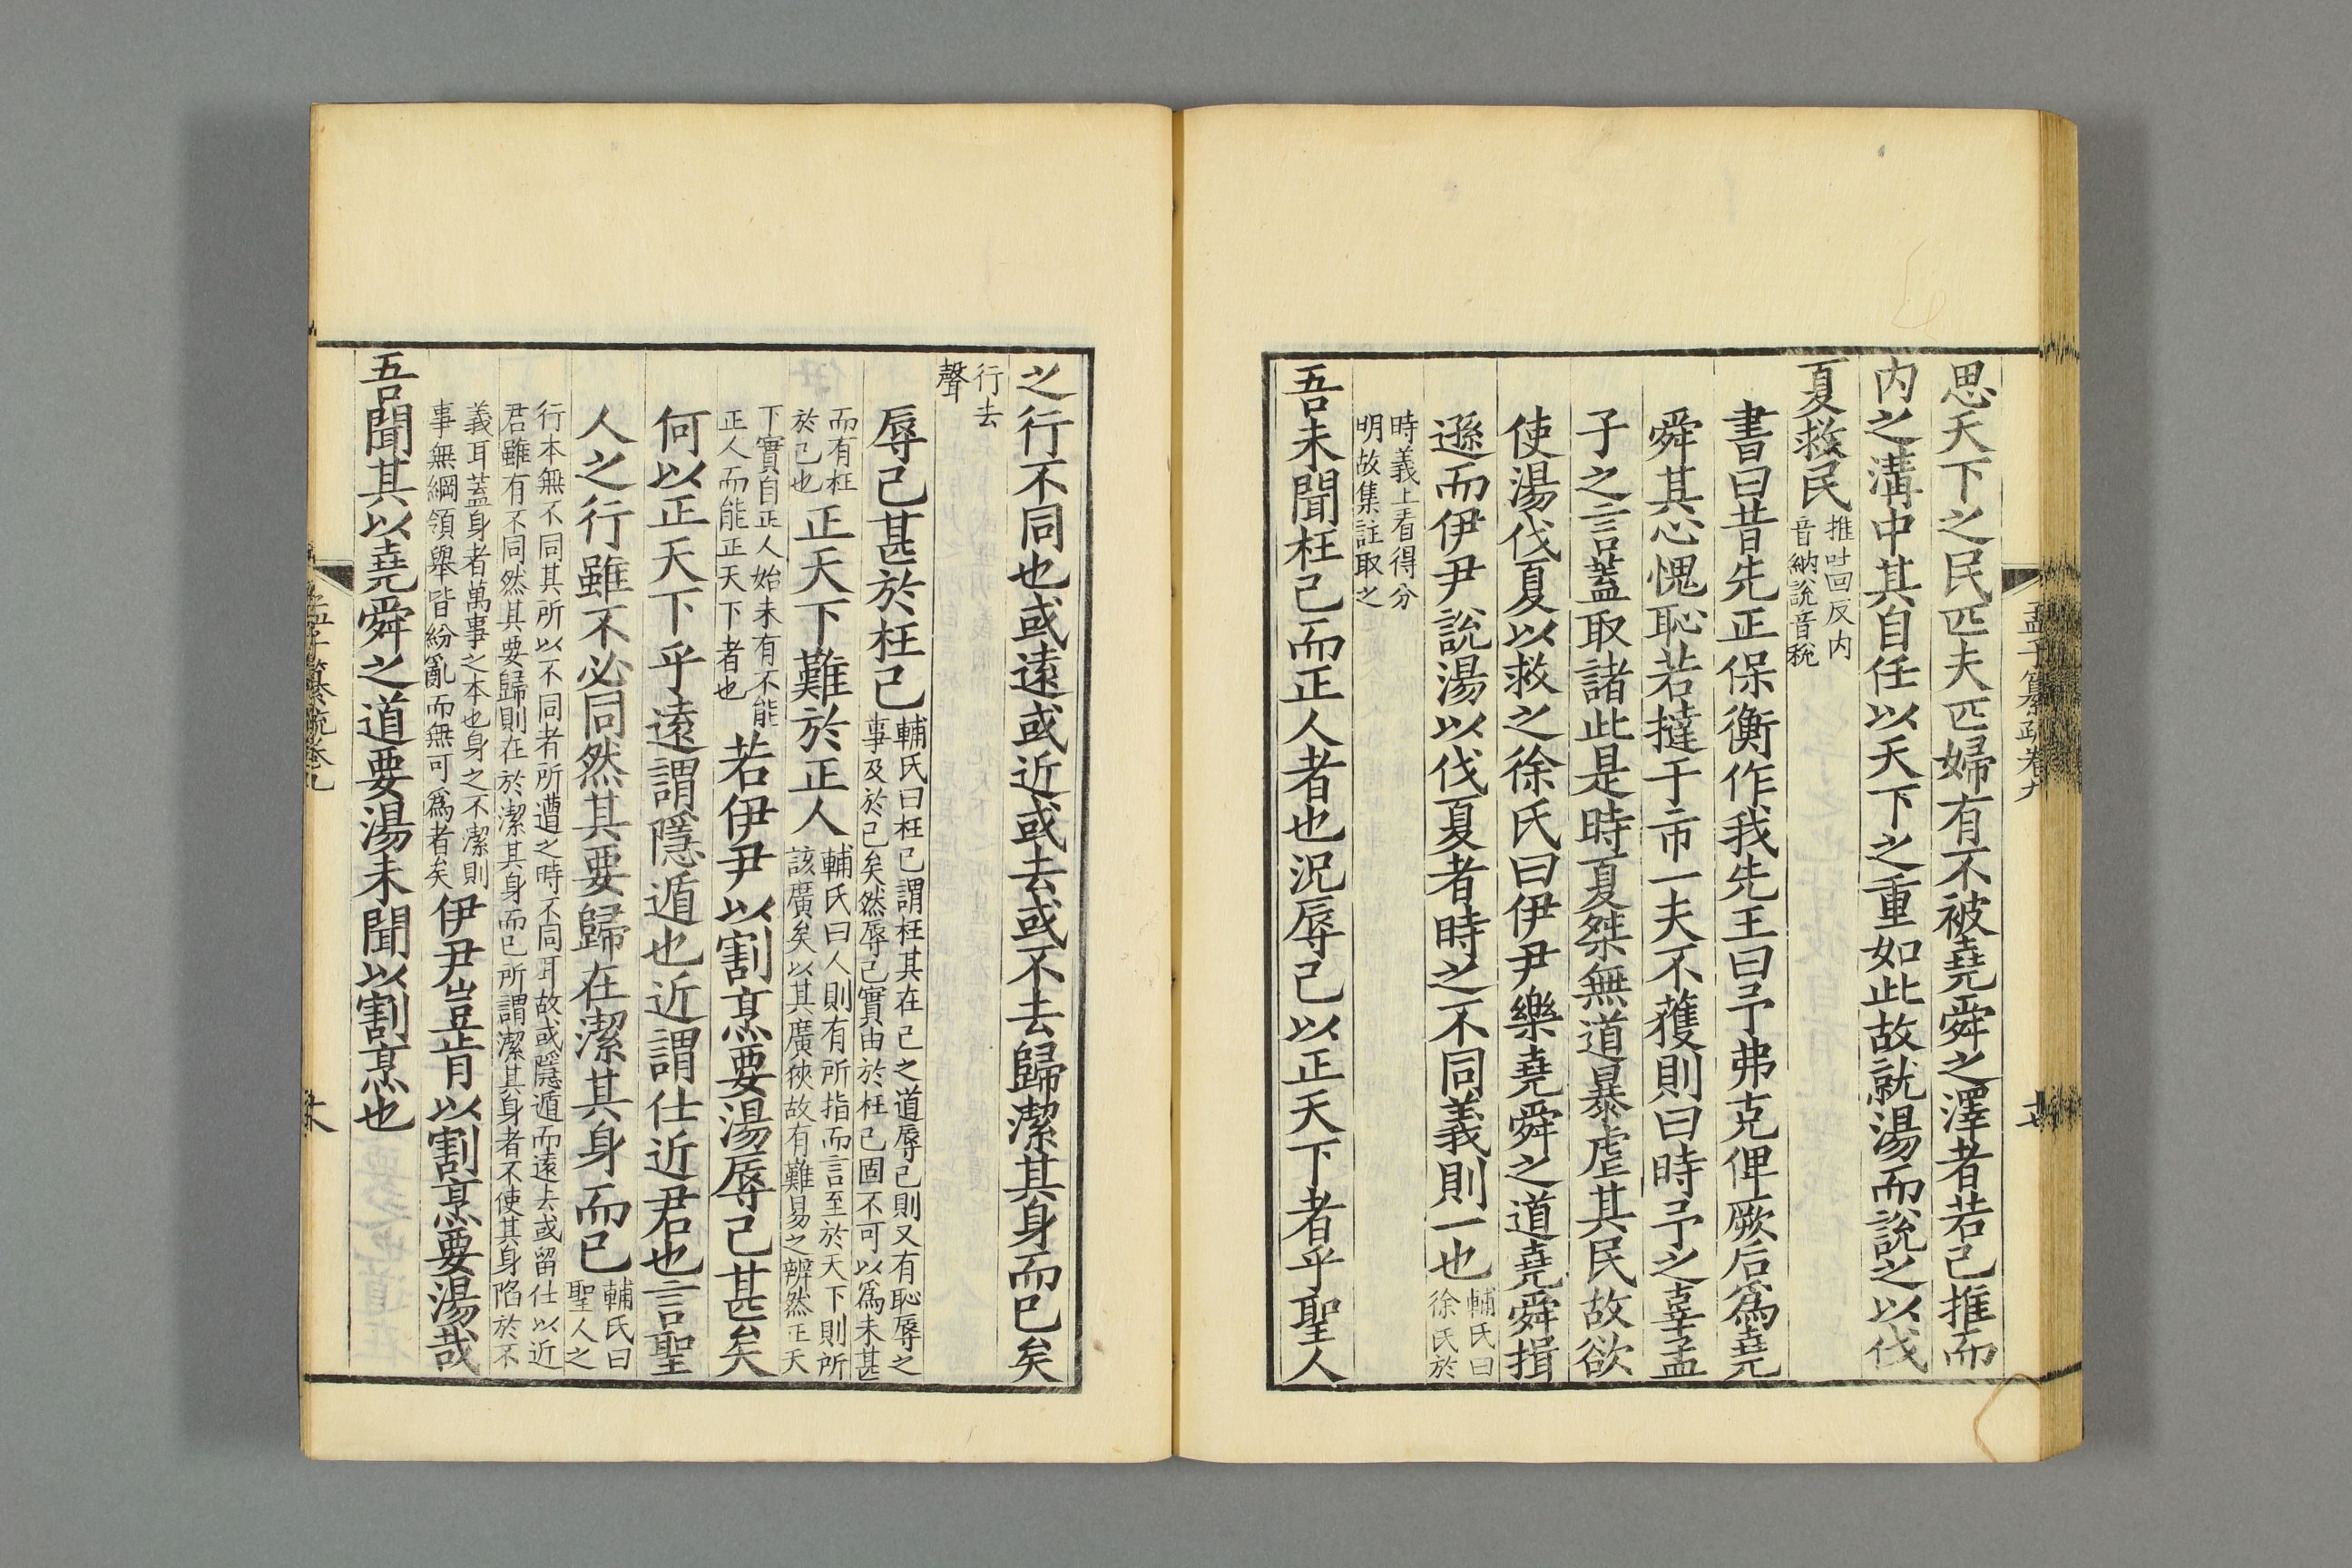 思天下之民匹夫匹婦有不被堯舜之澤者若己推而
内之溝中其自任以天下之重如此故就湯而說之以伐
夏救民
推吐回反内
音納說音稅
書曰昔先正保衡作我先王曰予弗克俾厥后爲堯
舜其心愧恥若撻于市一夫不獲則曰時予之辜孟
子之言蓋取諸此是時夏桀無道暴虐其民故欲
使湯伐夏以救之徐氏曰伊尹樂堯舜之道堯舜揖
遜而伊尹說湯以伐夏者時之不同義則一也
輔氏曰
徐氏於
時義上看得分
明故集註取之
吾未聞枉己而正人者也況辱己以正天下者乎聖人
之行不同也或遠或近或去或不去歸潔其身而已矣
行去
聲
辱己甚於枉己
輔氏曰枉己謂枉其在己之道辱己則又有恥辱之
事及於己矣然辱己實由於枉己固不可以爲未甚
而有枉
於己也
正天下難於正人
輔氏曰人則有所指而言至於天下則所
該廣矣以其廣狹故有難易之辨然正天
下實自正人始未有不能
正人而能正天下者也
若伊尹以割烹要湯辱己甚矣
何以正天下乎遠謂隱遁也近謂仕近君也言聖
人之行雖不必同然其要歸在潔其身而已
輔氏曰
聖人之
行本無不同其所以不同者所遭之時不同耳故或隱遁而遠去或留仕以近
君雖有不同然其要歸則在於潔其身而已所謂潔其身者不使其身陷於不
義耳蓋身者萬事之本也身之不潔則
事無綱領舉皆紛亂而無可爲者矣
伊尹豈肯以割烹要湯哉
吾聞其以堯舜之道要湯未聞以割烹也
孟子纂疏卷九